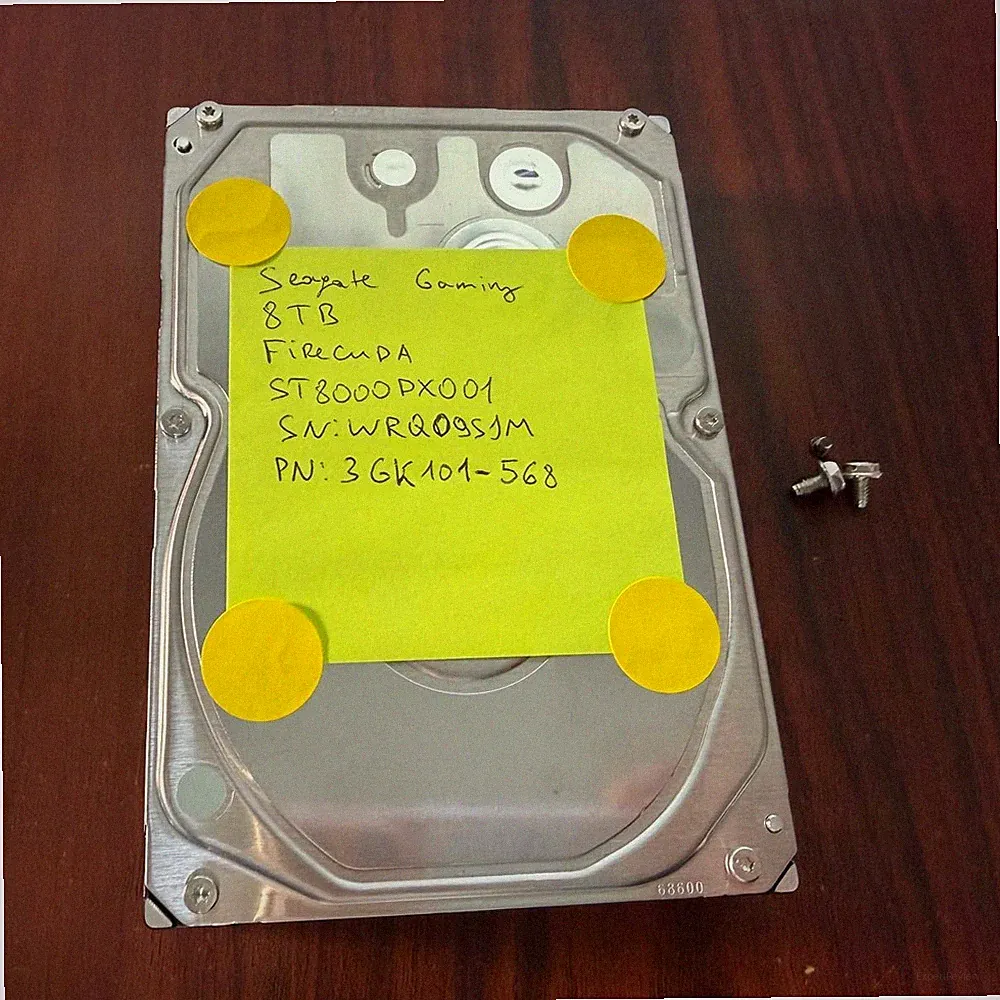 Seagate Gaming
8TB
FIReCuDA
ST8000DX001
SN:WRQ09S1M
PN: 3GK101-568
63600